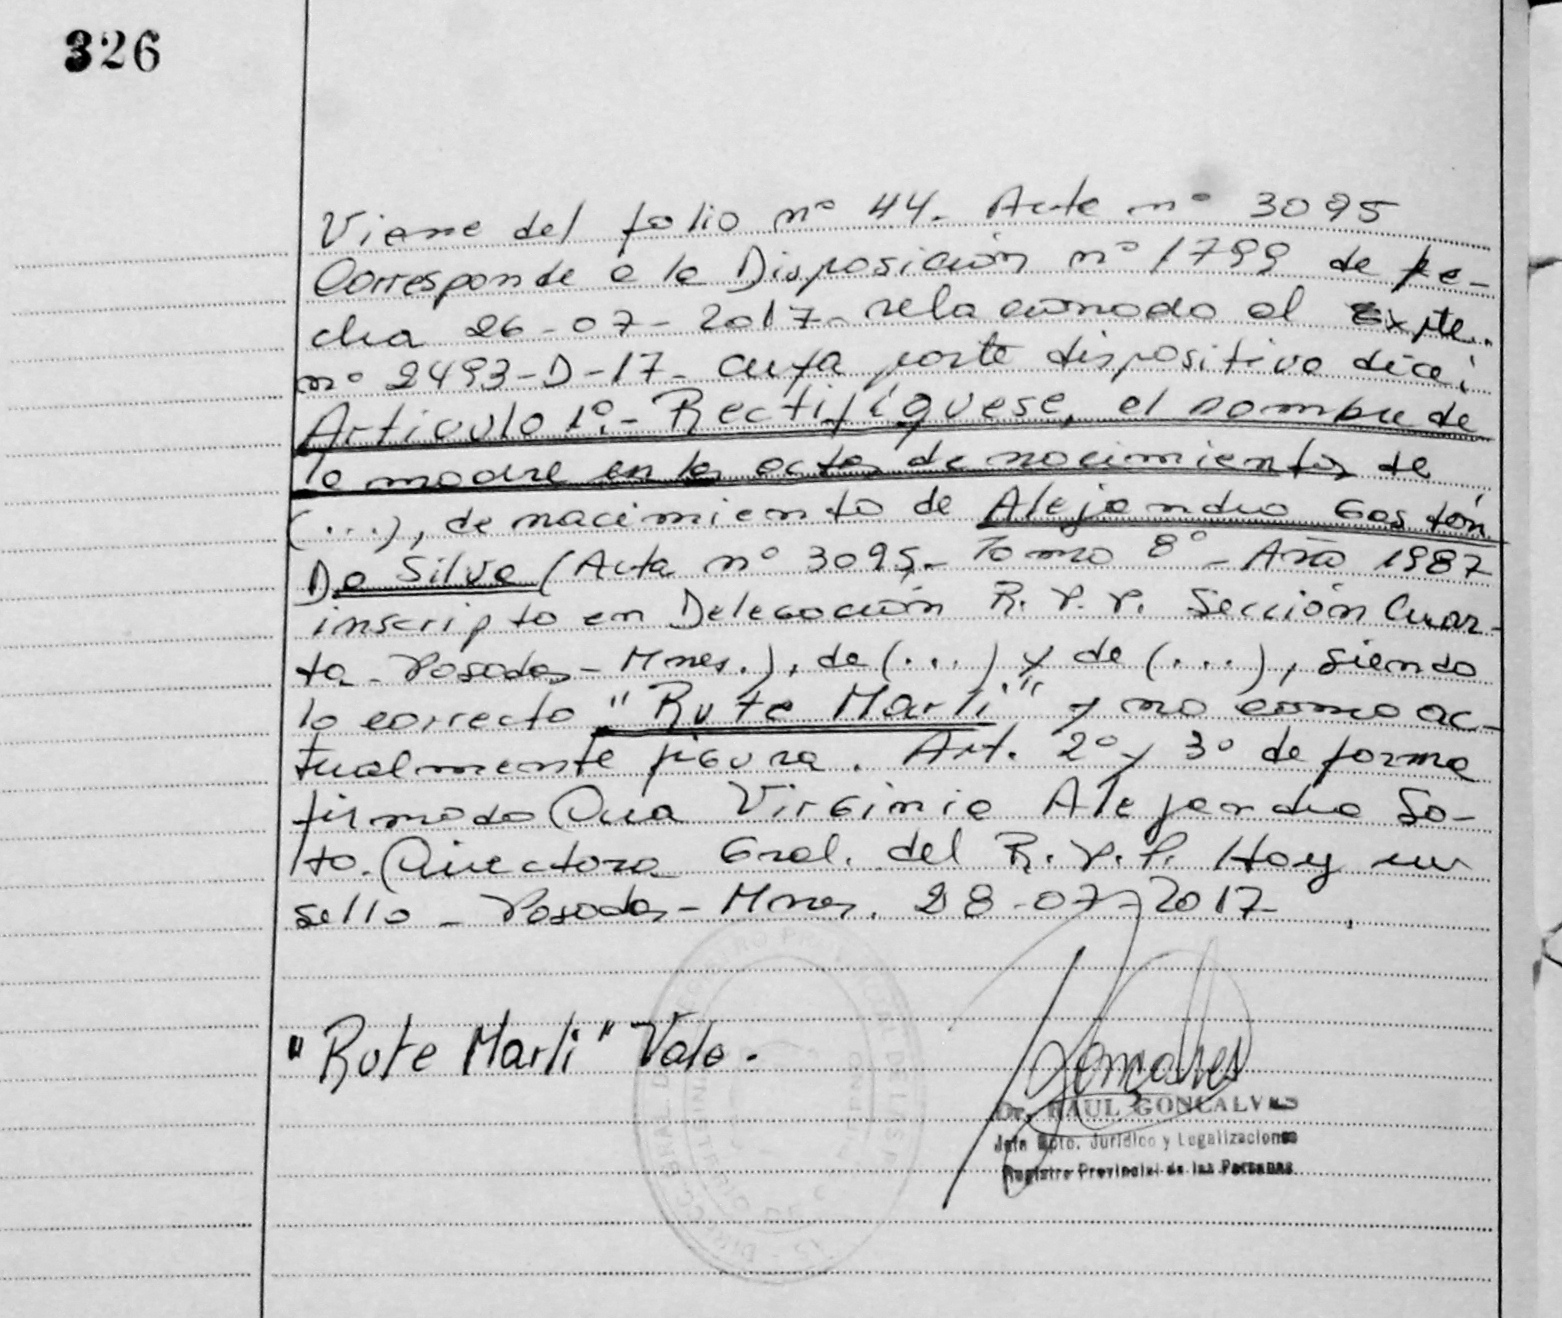 326
Viene del folio nº 44. Acta nº 3095
Corresponde a la Disposición nº 1799 de fe-
cha 26-07-2017- relacionado al Expte.
nº 2493-D-17- cuya parte dispositiva dice:
Articulo 1º.- Rectifíquese, el nombre de
la madre en las actas de nacimientos de
(...), de nacimiento de Alejandro Gastón
Da Silva (Acta nº 3095- Tomo 8º - Año 1987
inscripto en Delegación R. P. P. Sección Cuar-
ta- Posadas - Mnes.), de (...) y de (...), siendo
lo correcto "Rute Marli" y no como ac-
tualmente figura. Art. 2º y 3º de forma
firmado Dra Virginia Alejandra So-
to. Directora Gral. del R. P. P. Hay un
sello - Posadas - Mnes. 28-07-2017
"Rute Marli" Vale.
Dr. RAUL GONCALVES
Jefe Dpto. Jurídico y Legalizaciones
Registro Provincial de las Personas